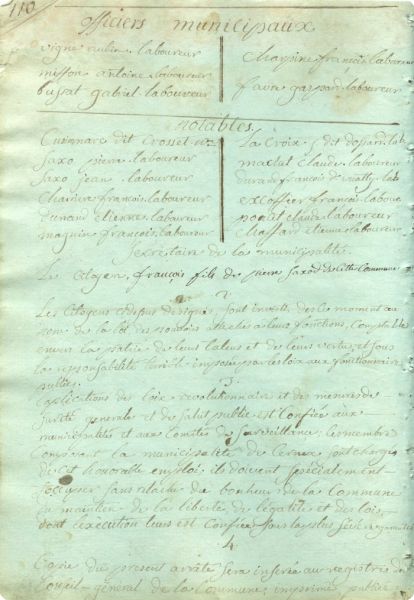 110
officiers municipaux
vigne aubin laboureur
misson antoine laboureur
bussat gabriel laboureur
Charpine françois laboureur
favre gaspard laboureur
notables
dit Crosset
Saxo pierre laboureur
Saxo jean laboureur
Charriere françois laboureur
Dunand etienne laboureur
magnin françois laboureur
La Croix dit dossard lab
machet claude laboureur
durand françois lab
excoffier françois labou
claude laboureur
Chaffard etienne laboureur
Secretaire de la municipalité
Le Citoyen, françois fils de pierre Saxod de cette Commune
2
Les Citoyens cydessus designés, sont investi des le moment au
nom de la loi des pouvoirs attachés a leurs fonctions, Comptable
envers la patrie de leur talens et de leurs vertus, et sous
la responsabilité imposée par les loix aux fonctionnaires
publics.
3.
des loix revolutionnaire et des mesures de
sureté generale et de Salut public est Confiée aux
municipalités et aux Comités de Surveillance; les membres
Composant la municipalité de Cernex sont chargés
de cet honorable employ; ils doivent specialement
s'occuper sans relache du bonheur de la Commune
du maintien de la liberté de l'egalité et des lois,
dont l'execution leurs est Confiée sous la plus severe
4
Copie du present arrêté sera inserée au registres de
Conseil-général de la Commune, imprimé publié